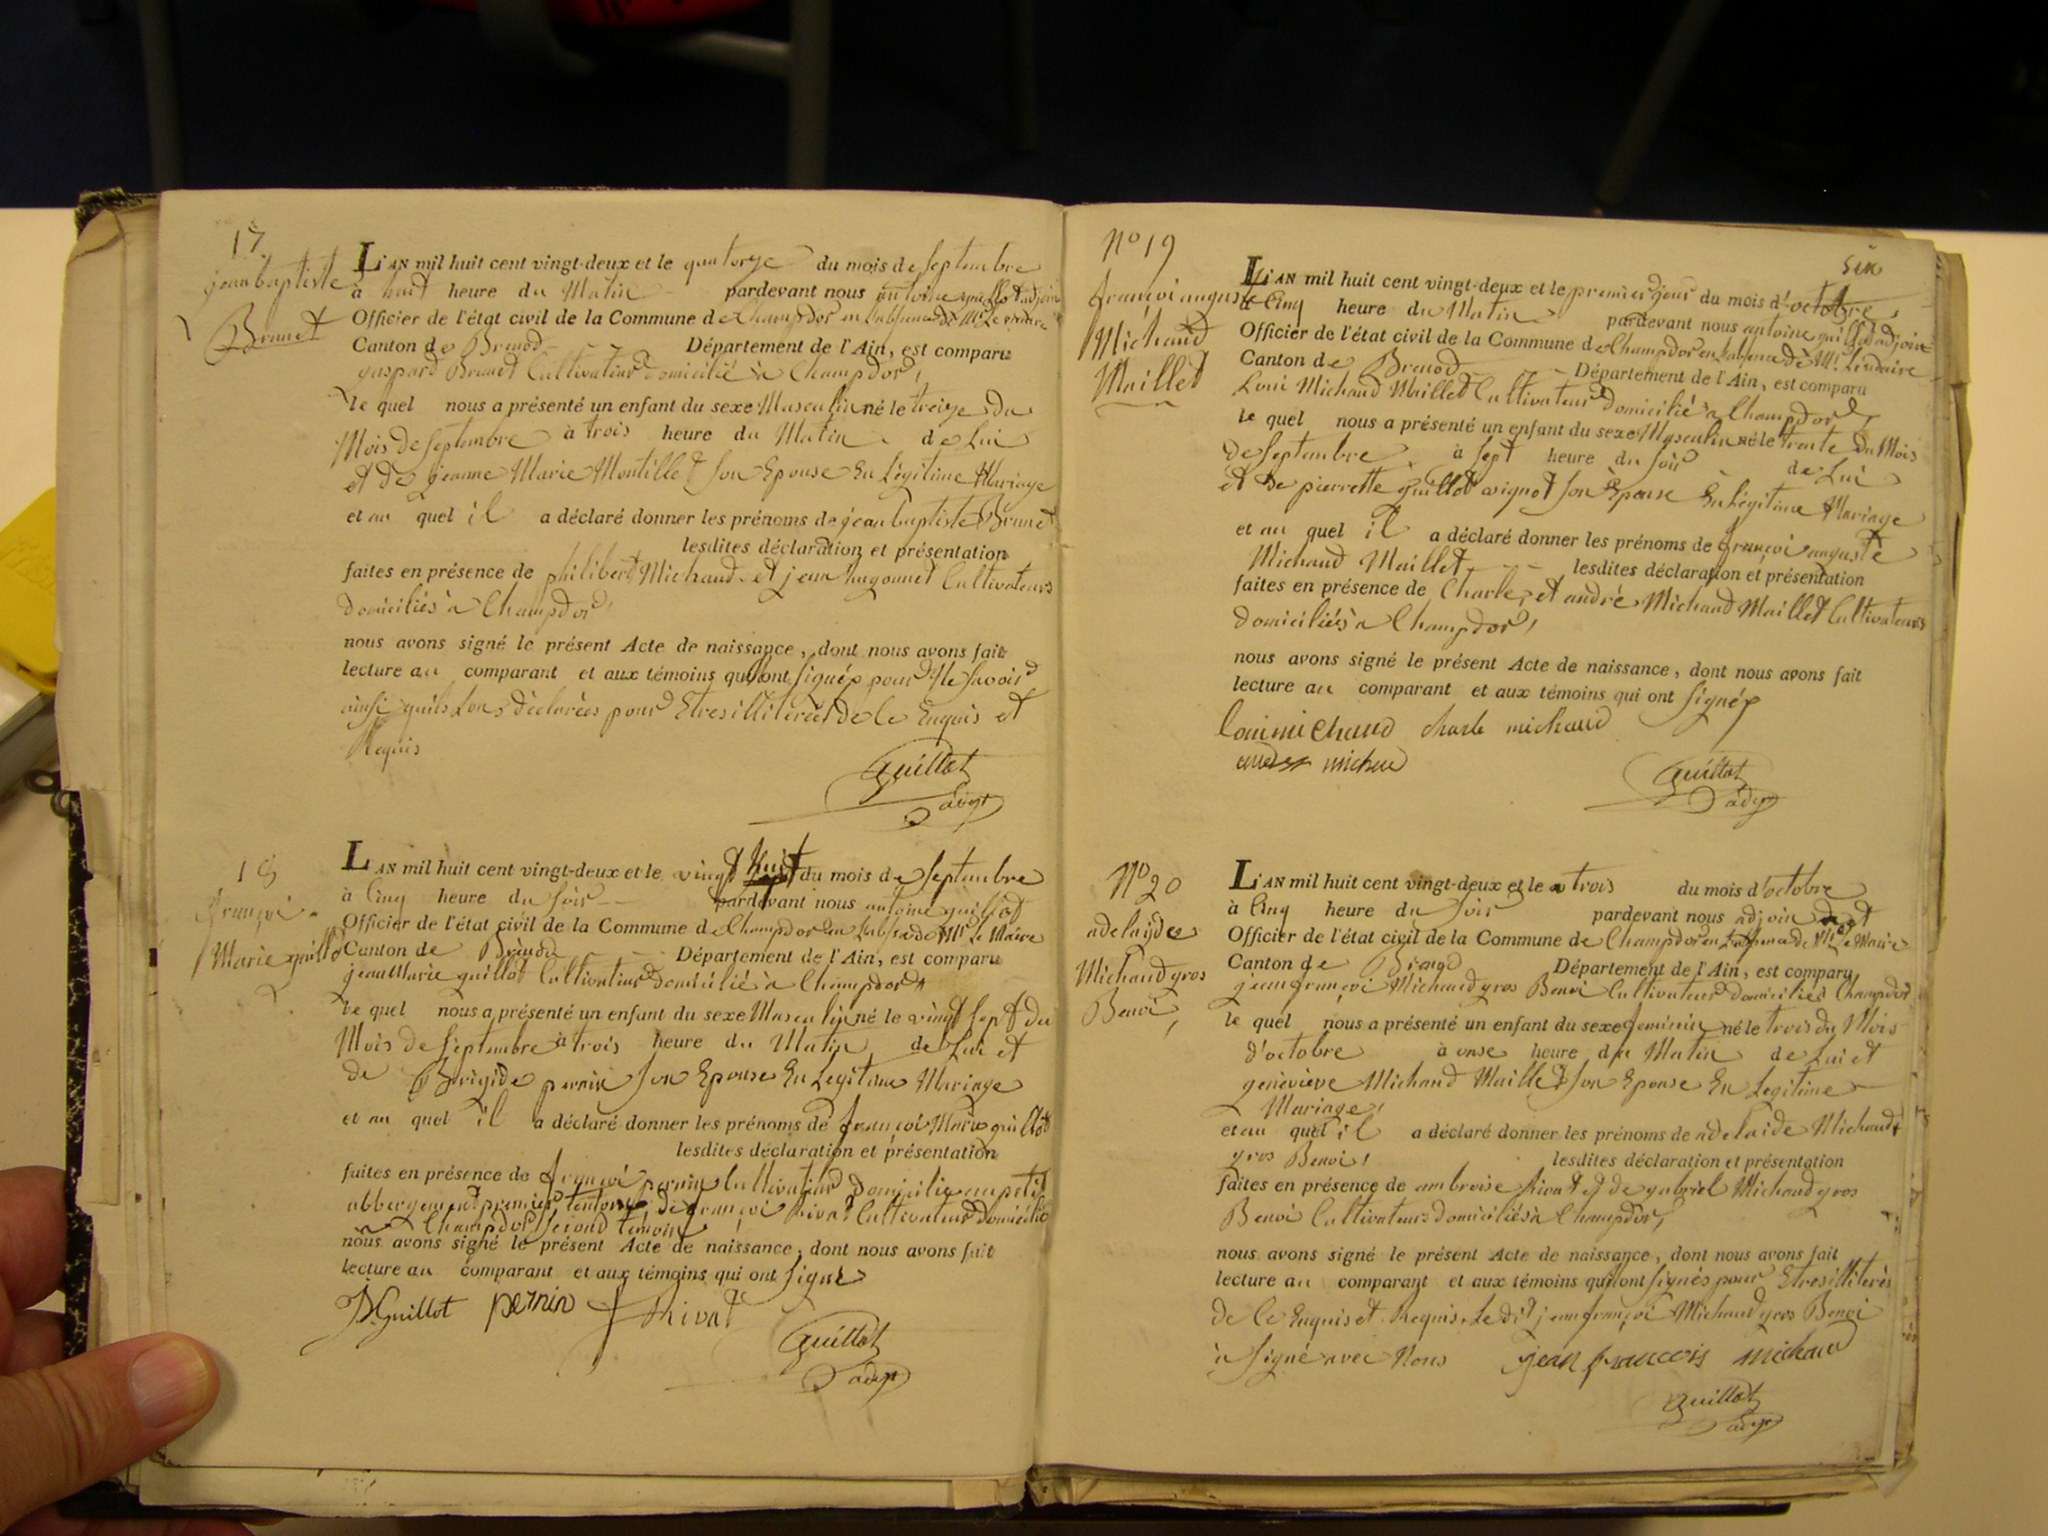 17
jean baptiste
Brunet
L'AN mil huit cent vingt-deux et le quatorze du mois de Septembre
à huit heure du Matin pardevant nous antoine guillot adjoin
Officier de l'état civil de la Commune de Champdor en Labsence de Mr Le Maire
Canton de Brenod Département de l'Ain, est comparu
gaspard Brunet Cultivateur domicilié à Champdor,
le quel nous a présenté un enfant du sexe Masculin né le treize du
Mois de Septembre à trois heure du Matin de Lui
et de jeanne Marie Montillet Son Epouse En Légitime Mariage
et au quel il a déclaré donner les prénoms de jean baptiste Brunet
lesdites déclaration et présentation
faites en présence de philibert Michaud et jean hugonnet Cultivateurs
domiciliés à Champdor,
nous avons signé le présent Acte de naissance, dont nous avons fait
lecture au comparant et aux témoins qui ont Signés pour Ne Savoir
ainsi quils Lons déclarées pour Etres illiterées de ce Enquis et
Requis
Guillot
adjt
18
françoi
Marie guillot
L'AN mil huit cent vingt-deux et le vingt huit du mois de Septembre
à Cinq heure du Soir pardevant nous antoine guillot
Officier de l'état civil de la Commune de Champdor en Labsence de Mr Le Maire
Canton de Brénod Département de l'Ain, est comparu
jean Marie guillot Cultivateur domicilié à Champdor
le quel nous a présenté un enfant du sexe Masculin né le vingt Sept du
Mois de Septembre à trois heure du Matin de Lui et
de Brigide pernin Son Epouse En Legitime Mariage
et au quel il a déclaré donner les prénoms de françoi Marie guillot
lesdites déclaration et présentation
faites en présence de françoi pernin Cultivateur domicilié au petit
abbergement premier temoin, de françoi hivat Cultivateur domicilié
à Champdor Second temoin
nous avons signé le présent Acte de naissance, dont nous avons fait
lecture au comparant et aux témoins qui ont Signé
J M Guillot pernin f hivat
Guillot
adjt
Six
No 19
françoi auguste
Michaud
Maillet
L'AN mil huit cent vingt-deux et le premier jour du mois d'octobre,
à Cinq heure du Matin pardevant nous antoine guillot adjoin
Officier de l'état civil de la Commune de Champdor en Labsence de Mr. Le Maire
Canton de Brenod Département de l'Ain, est comparu
Loui Michaud Maillet Cultivateur domicilié à Champdor,
le quel nous a présenté un enfant du sexe Masculin né le trente du Mois
de Septembre à Sept heure du Soir de Lui
et de pierrette guillot Son Epouse En Légitime Mariage
et au quel il a déclaré donner les prénoms de françoi auguste
Michaud Maillet lesdites déclaration et présentation
faites en présence de Charle, et andré Michaud Maillet Cultivateurs
domiciliés à Champdor,
nous avons signé le présent Acte de naissance, dont nous avons fait
lecture au comparant et aux témoins qui ont Signés
loui michaud charle michaud
Guillot
adjt
No 20
adelayde
Michaud gros
Benoi
L'AN mil huit cent vingt-deux et le trois du mois d'octobre
à Cinq heure du Soir pardevant nous adjoin
Officier de l'état civil de la Commune de Champdor en Labsence de Mr Le Maire
Canton de Brenod Département de l'Ain, est comparu
jean françoi Michaud gros Benoi Cultivateur domicilié à Champdor
le quel nous a présenté un enfant du sexe feminin né le trois du Mois
d'octobre à onse heure du Matin de Lui et
geneviève Michaud Maillet Son Epouse En Legitime
Mariage,
et au quel il a déclaré donner les prénoms de adelaide Michaud
gros Benoi, lesdites déclaration et présentation
faites en présence de ambroise hivat et de gabriel Michaud gros
Benoi Cultivateurs domiciliés à Champdor,
nous avons signé le présent Acte de naissance, dont nous avons fait
lecture au comparant et aux témoins qui ont Signés pour Etres illiterés
de Ce Enquis et Requis, Le dit jean françoi Michaud gros Benoi
à Signé avec Nous jean francois michaud
Guillot
adjt